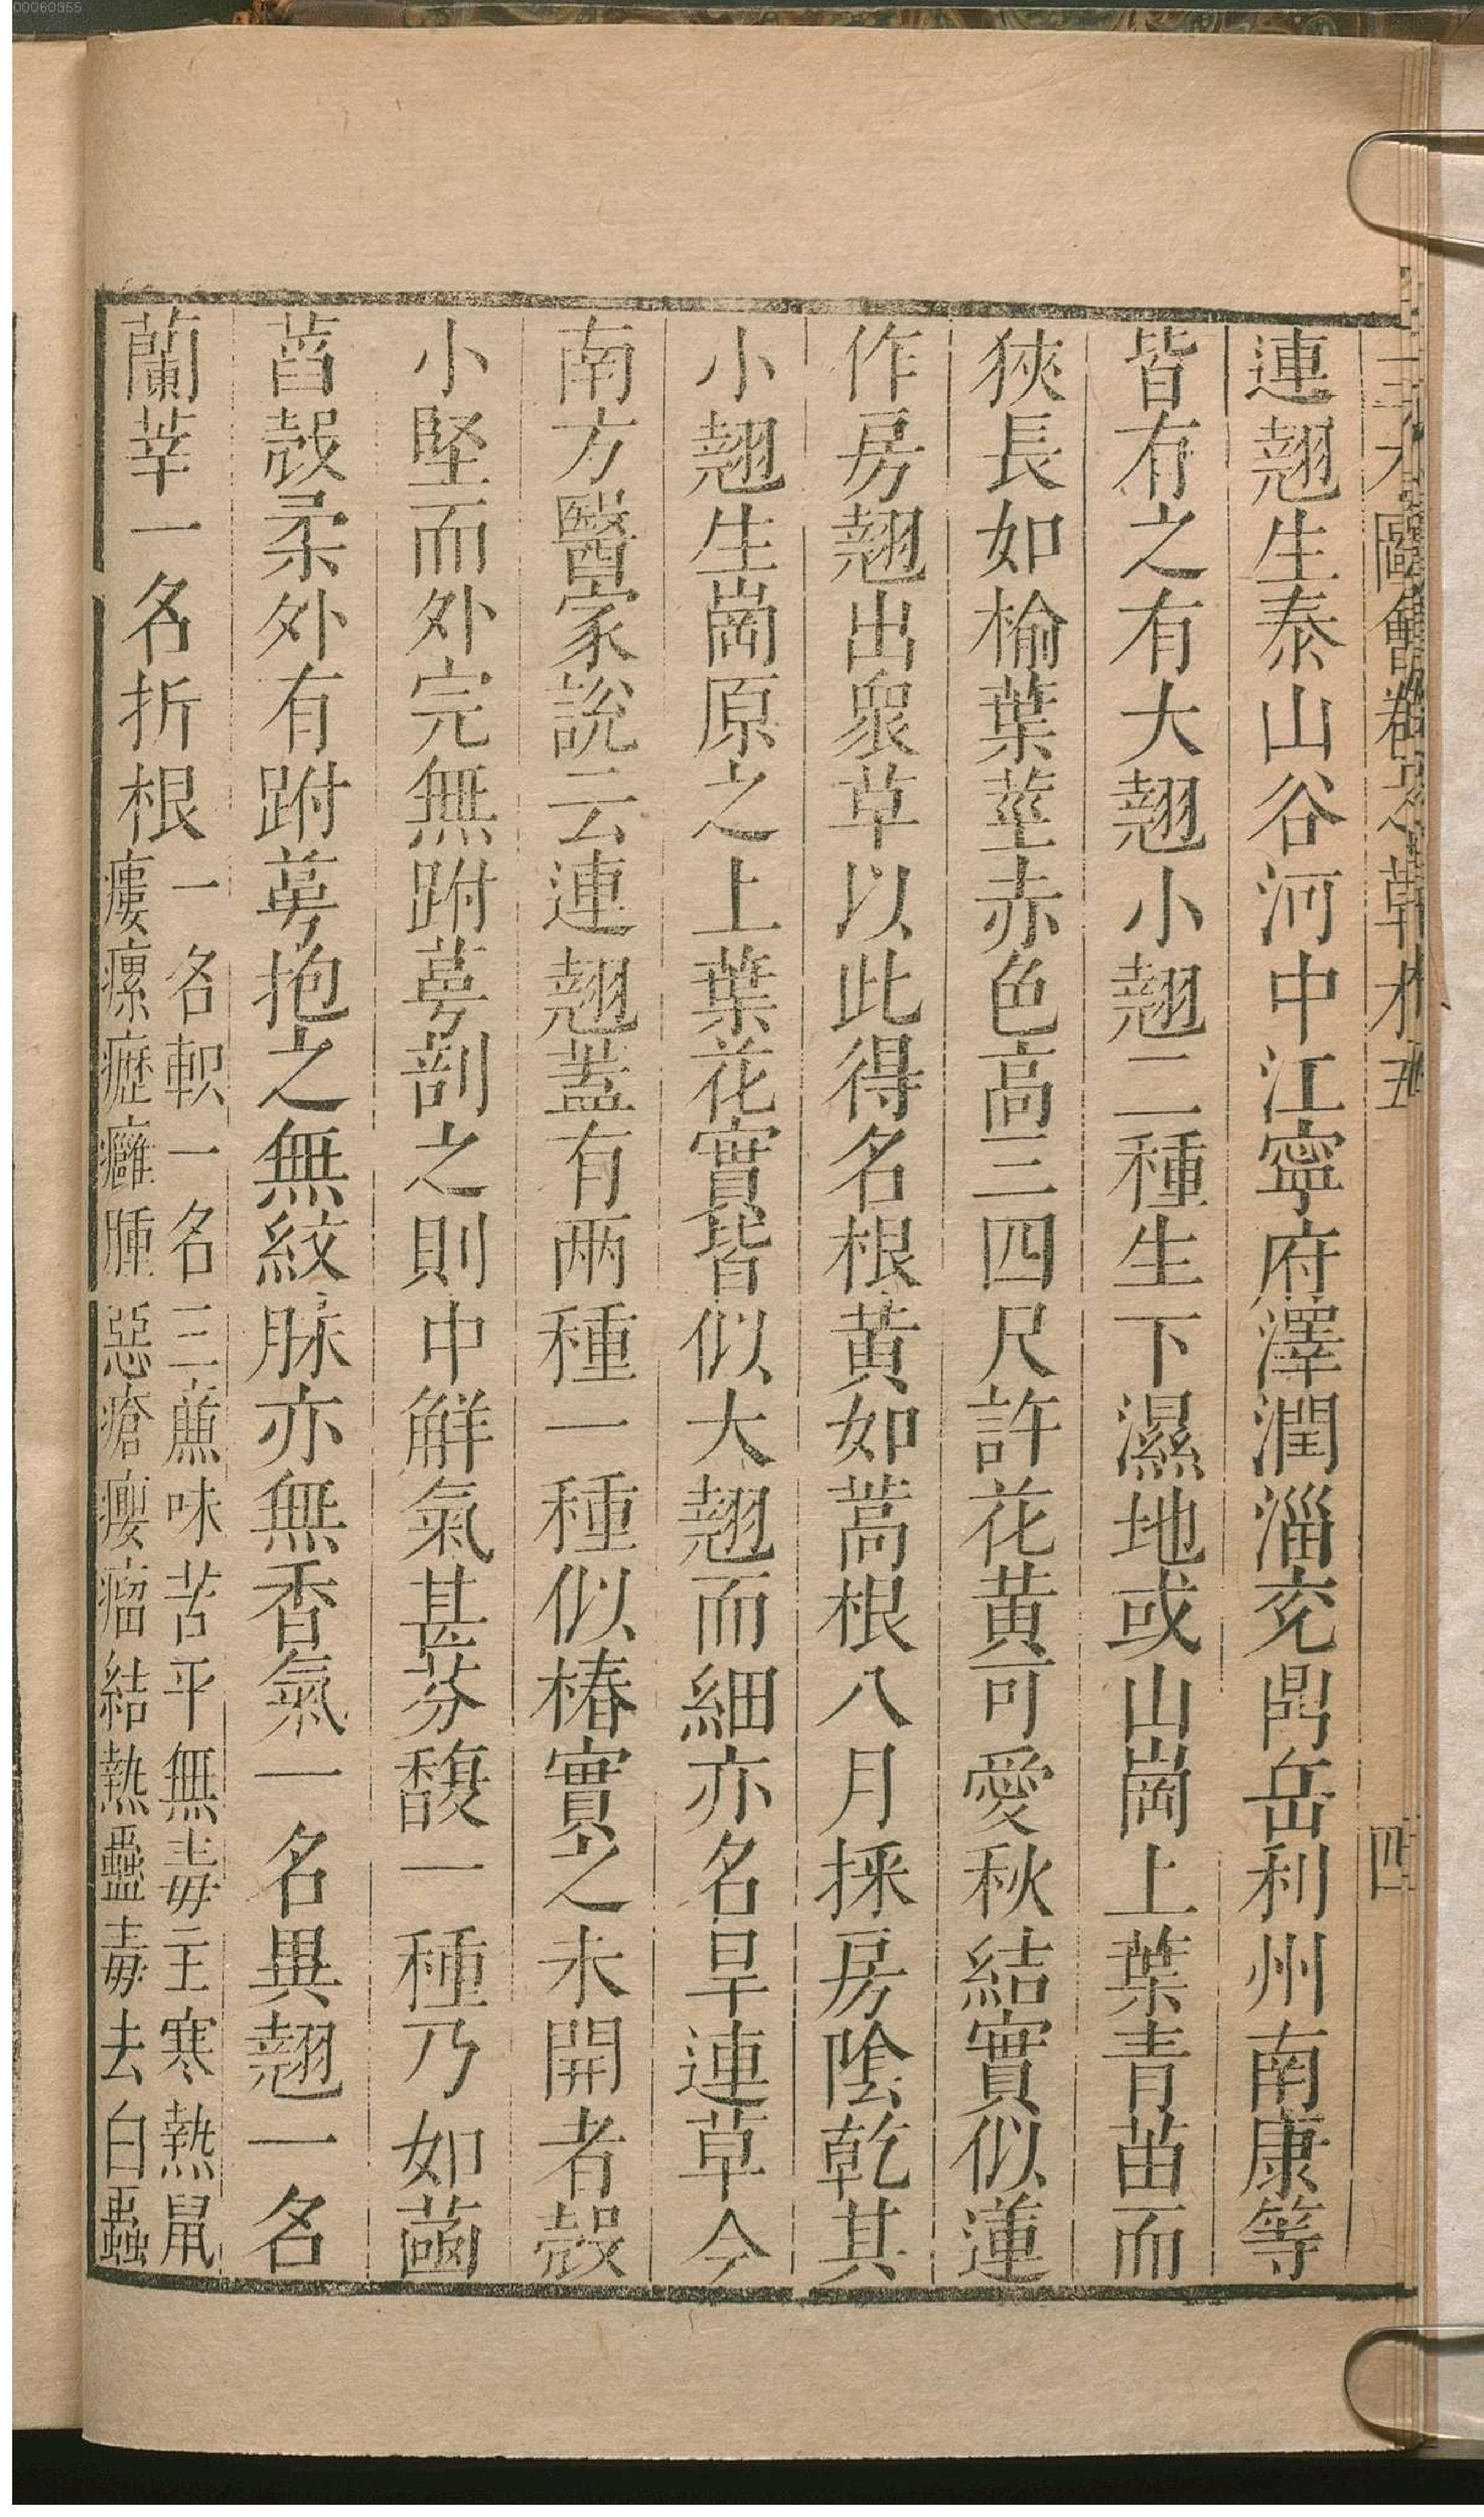 00060355
三才圖會卷之草木五 四
連翹生泰山谷河中江寧府澤潤淄兖鼎岳利州南康等
皆有之有大翹小翹二種生下濕地或山崗上葉青苗而
狹長如榆葉莖赤色高三四尺許花黄可愛秋結實似蓮
作房翹出衆草以此得名根黄如蒿根八月採房陰乾其
小翹生崗原之上葉花實皆似大翹而細亦名旱連草今
南方醫家說云連翹葢有兩種一種似椿實之未開者殼
小堅而外完無跗萼剖之則中解氣甚芬馥一種乃如菡
萏殼柔外有跗萼抱之無紋脉亦無香氣一名異翹一名
蘭華一名折根
一名軹一名三薕味苦平無毒主寒熱鼠
瘻瘰癧癰腫惡瘡癭瘤結熱蠱毒去白蟲